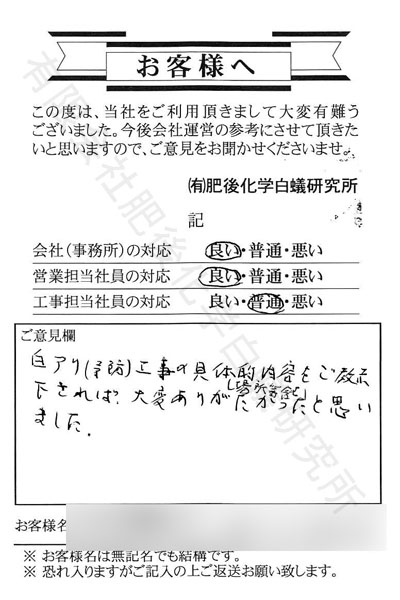 お客様へ
この度は、当社をご利用頂きまして大変有難う
ございました。今後会社運営の参考にさせて頂きた
いと思いますので、ご意見をお聞かせくださいませ。
(有)肥後化学白蟻研究所
記
会社(事務所)の対応 良い・普通・悪い
営業担当社員の対応 良い・普通・悪い
工事担当社員の対応 良い・普通・悪い
ご意見欄
白アリ(予防)工事の具体的内容をご教示
(場所等含む)
下されば、大変ありがたかったと思い
ました.
お客様名
※ お客様名は無記名でも結構です。
※ 恐れ入りますがご記入の上ご返送お願い致します。
有限会社肥後化学白蟻研究所